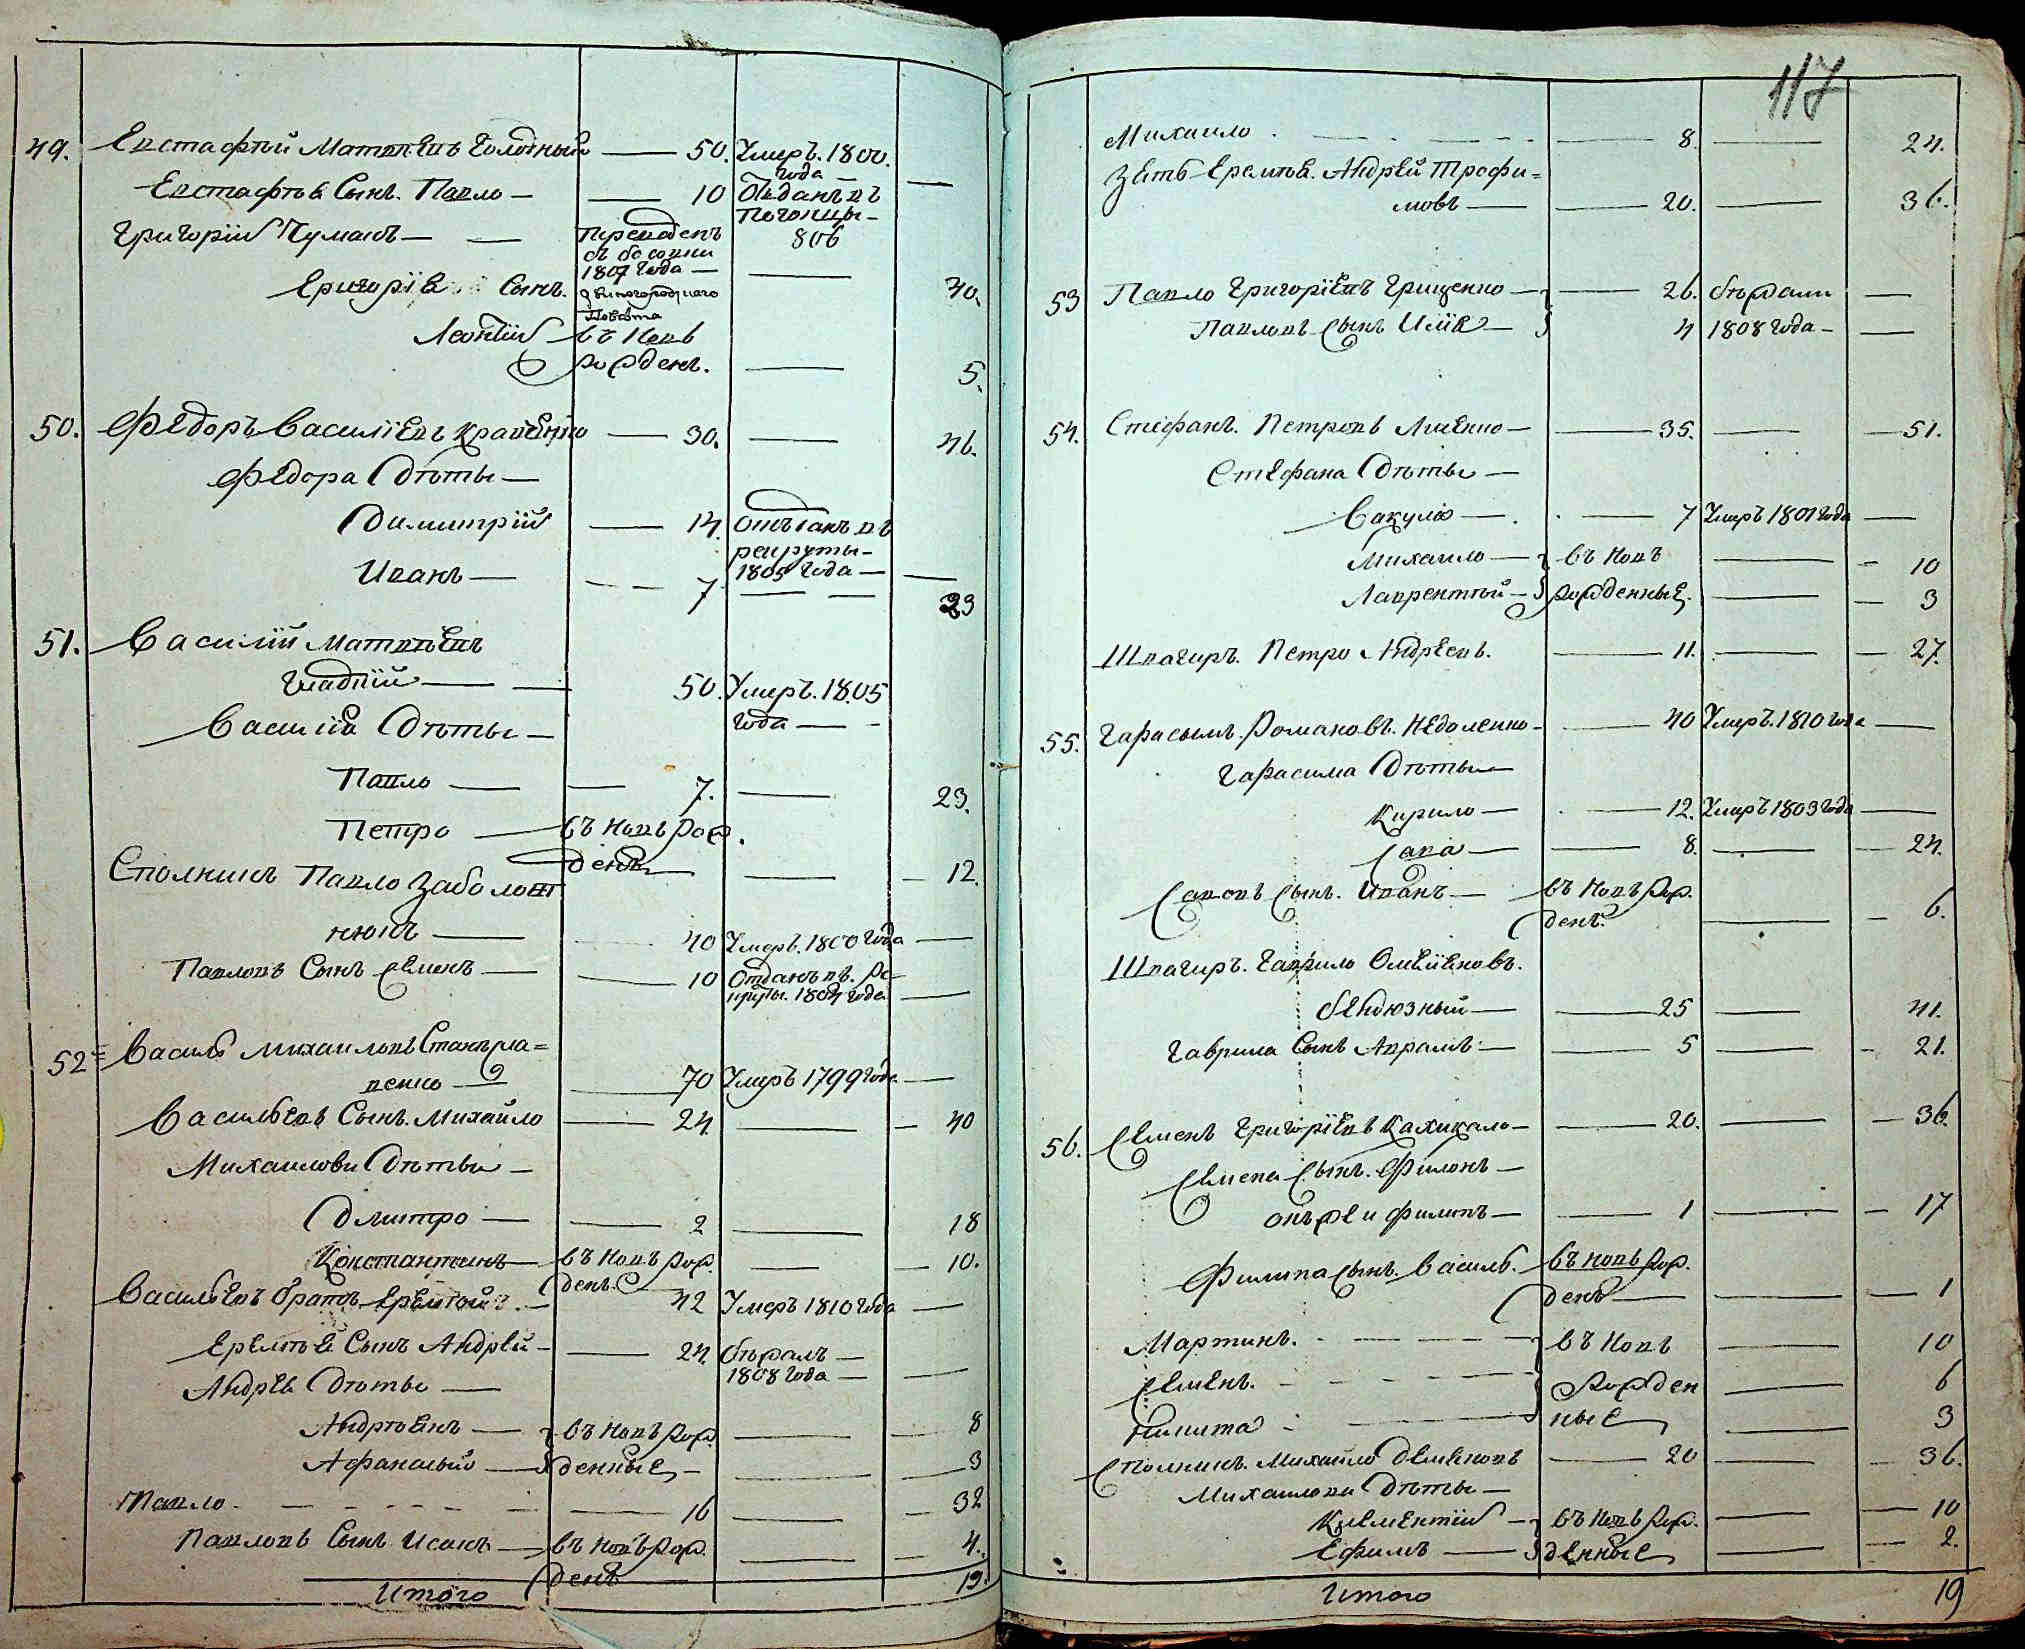 49. Евстафтй Матвѣевъ Голодный — 50. Умеръ. 1800. года —
Евстафтѣв Сынъ. Павло — 10 Отданъ въ Погонцы — 806
Григорій Чумакъ — Переведенъ
1807 года —
Григоріѣв Сынъ. 40.
Звиногородскаго Повѣта
Леонтій въ новѣ рожденъ. — 5.
50. Федоръ Василіевъ Кравченко — 30. — 46.
Федора Дѣти —
Димитрій — 14. Отъданъ въ рекруты — 1805 года —
Иванъ — 7 — 23
51. Василій Матвѣевъ
Гладкій — 50. Умеръ. 1805 года —
Василія Дѣти —
Павло — 7. — 23.
Петро — въ новѣ рож. денъ — 12.
Сполникъ Павло Заболот
нюкъ — 40 Умеръ. 1800 года —
Павловъ Сынъ Семенъ — 10 Отданъ въ. Ре- круты. 1804 года —
52 Василь Михаиловъ Станъсла=
венко — 70 Умеръ 1799 года —
Васильевъ Сынъ. Михайло — 24 — 40
Михаилови Дѣти —
Дмитро — 2 — 18
Константинъ — въ новѣ рож. денъ. — 10.
Васильевъ братъ Еремѣй — 42 Умеръ 1810 года —
Еремѣѣ Сынъ Андрей — 24. бѣжалъ — 1808 года —
Андрѣя Дѣти —
Андрѣянъ — въ новѣ рож. — 8
Афанасый — денные — 3
Павло. — 16 — 32
Павловъ Сынъ Исакъ — въ новѣ рож. денъ — 4.
Итого 19.
117
Михаило — 8. — 24.
Зять Еремѣев. Андрей Трофи=
мовъ — 20. — 36.
53 Павло Григоріевъ Грищенко — 26. бѣжали —
Павловъ Сынъ Илія — 4 1808 года —
54. Стефанъ. Петровъ — 35. — 51.
Стефана Дѣти —
Вакула — 7 Умеръ 1801 года —
Михаило — въ новѣ — 10
Лаврентій — рожденные. — 3
Швагиръ. Петро Андреевъ. — 11. — 27.
55. Гарасымъ. Романовъ. Недоленко — 40 Умеръ. 1810 года —
Гарасима Дѣти —
Кирило — 12. Умеръ 1803 года —
Сава — 8. — 24.
Савовъ Сынъ. Иванъ — въ новѣ рож. денъ. — 6.
Швагиръ. Гаврило Омеляновъ.
бендюзный — 25 — 41.
Гаврила Сынъ Аврамъ — 5 — 21.
56. Семенъ Григоріевъ Кахикало — 20. — 36.
Семена Сынъ. Филонъ —
онъже и Филипъ — 1 — 17
Филипа Сынъ. Василь. въ новѣ рож. денъ — 1
Мартинъ. — въ новѣ — 10
Семенъ. — рожден — 6
Никита — ные — 3
Сполникъ. Михайло Демяновъ — 20 — 36.
Михаилови Дѣти —
Клементій — въ новѣ рож. — 10
Ефимъ — денные — 2.
Итого 19